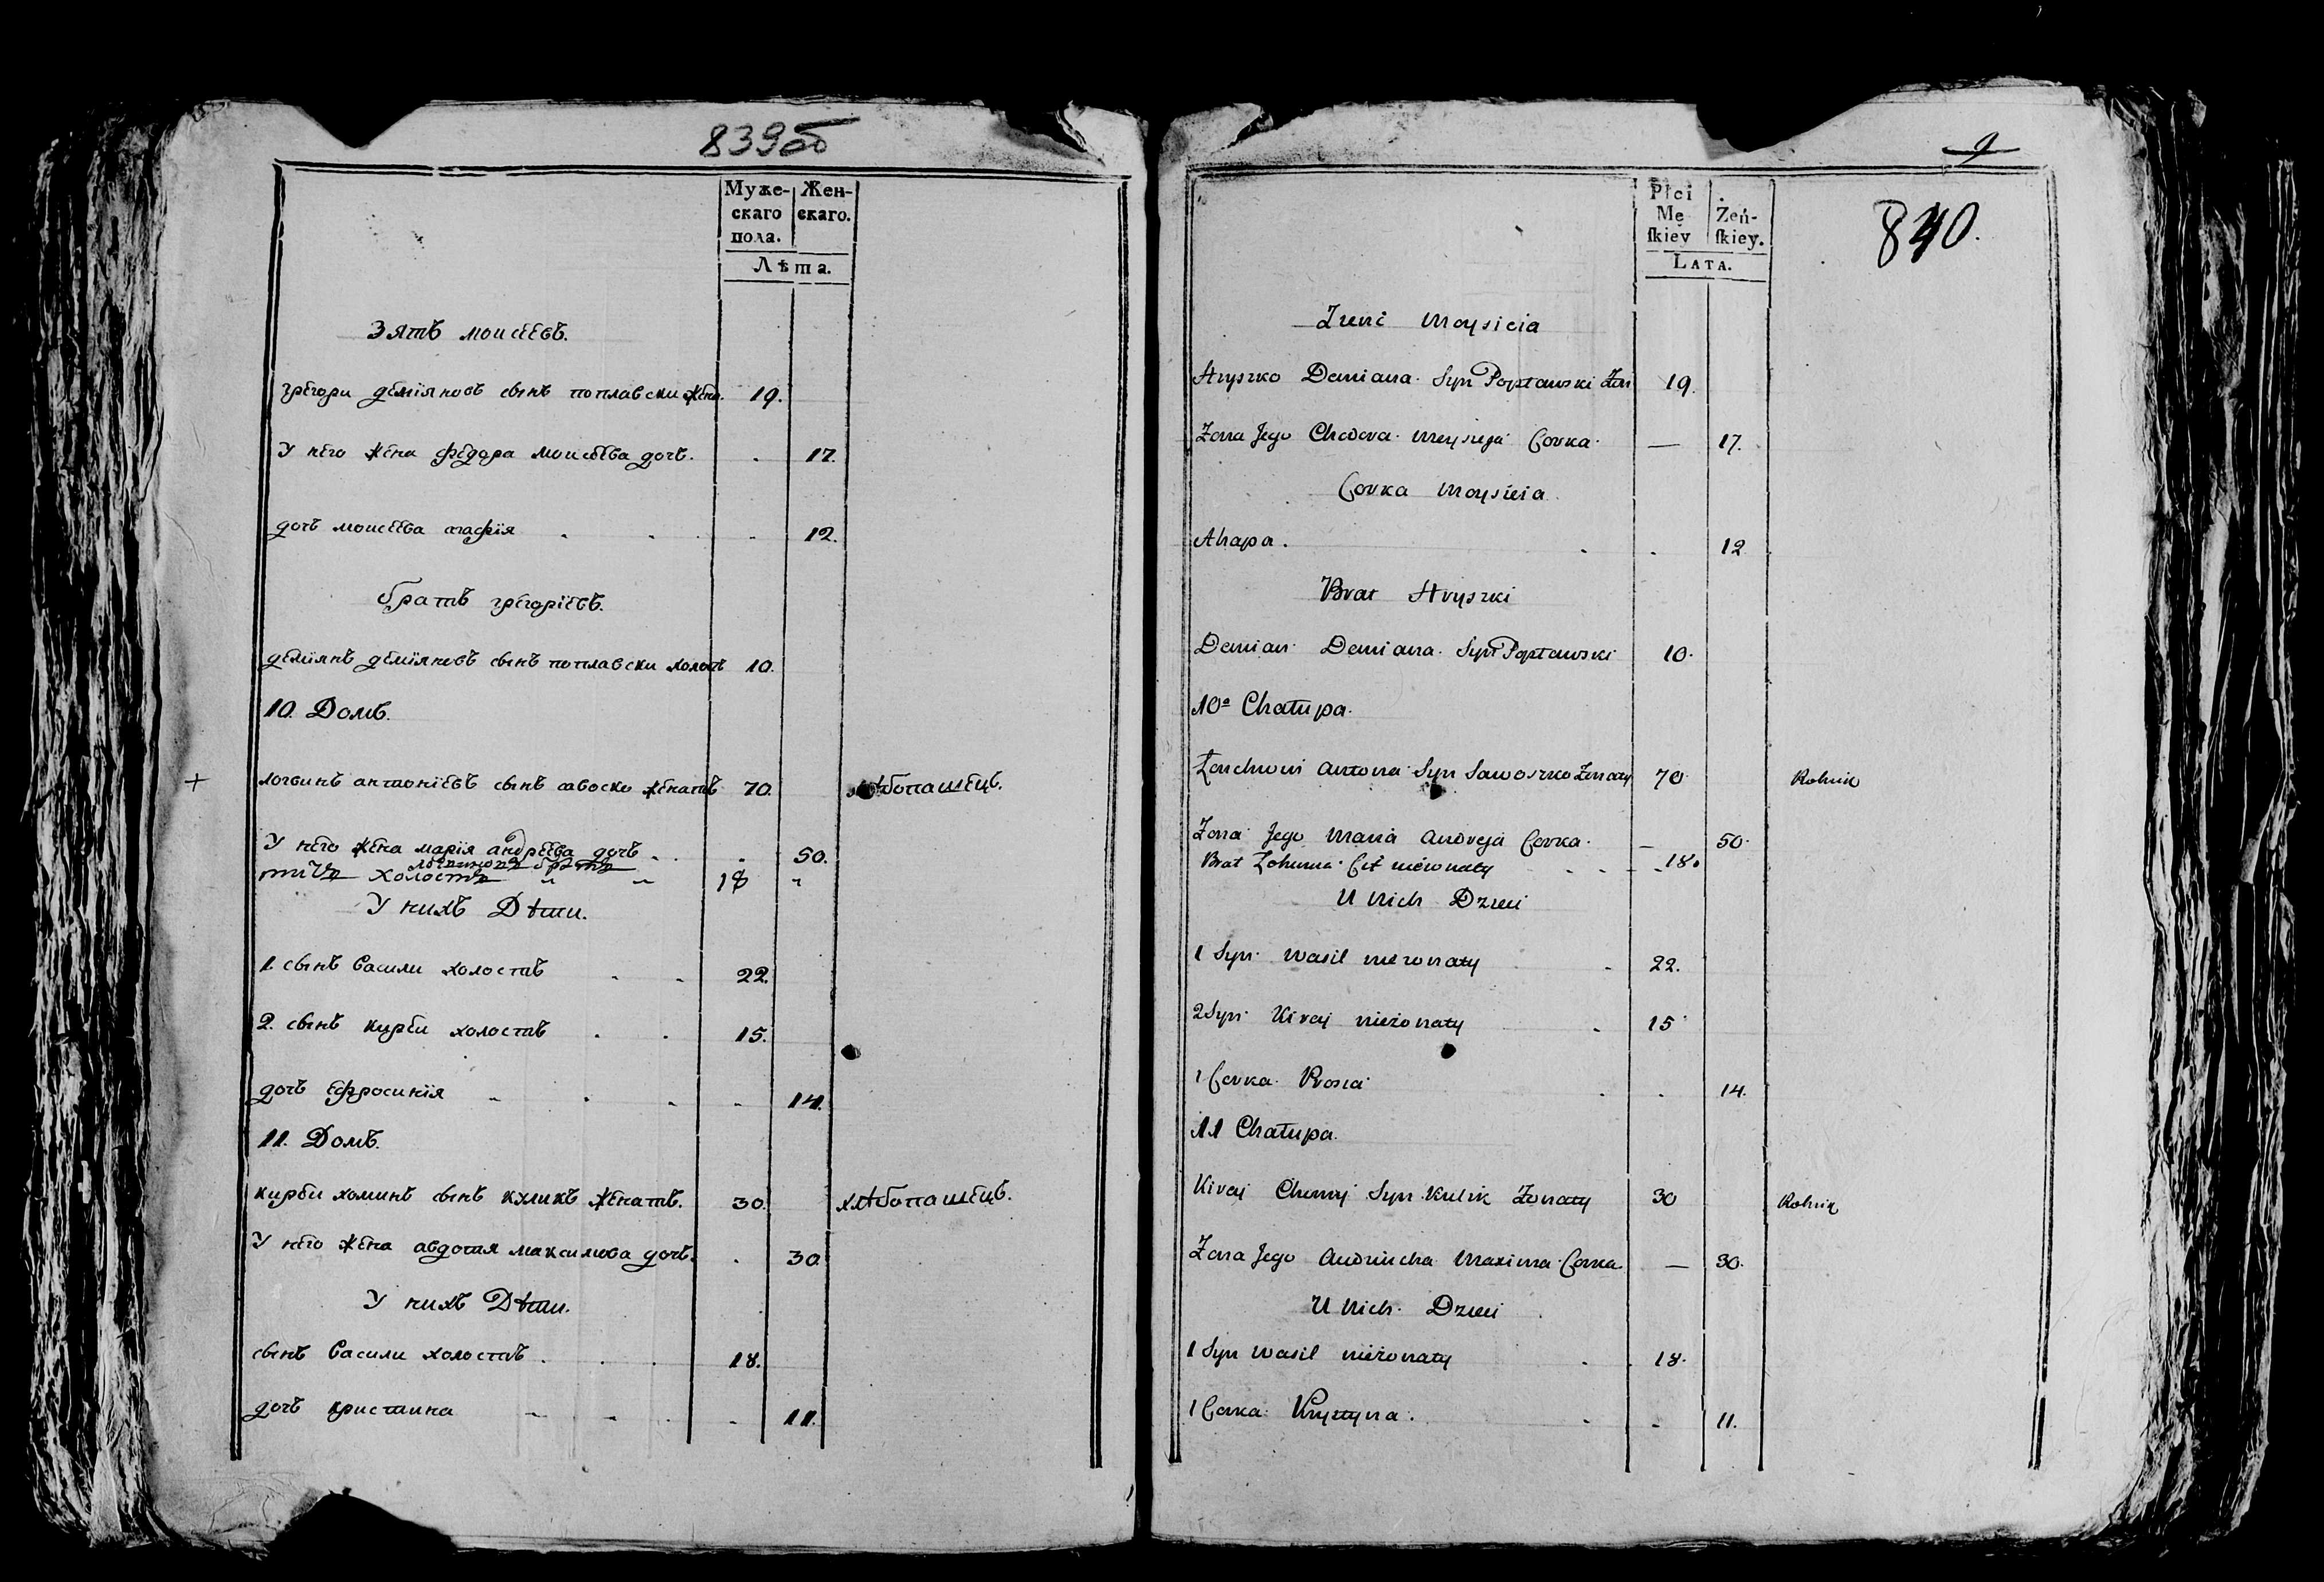 839об
Муже-
скаго
пола.
Жен-
скаго.
Лѣта.
Зять моисеевъ.
грегори деміяновъ сынъ поплавски жена. 19.
У него жена федора моисеева дочь. 17.
дочь моисеева агафія 12.
братъ грегоріевъ.
деміянъ деміяновъ сынъ поплавски холостъ 10.
10. Домъ.
+ логвинъ антоніевъ сынъ савоско женатъ 70. хлѣбопашецъ.
У него жена марія андреева дочь 50.
логвиновъ братъ
титъ холостъ 18
У нихъ Дѣти.
1. сынъ Васили холостъ 22.
2. сынъ кирѣи холостъ 15.
дочь ефросинія 14.
11. Домъ.
кирѣи хоминъ сынъ куликъ женатъ. 30. хлѣбопашецъ.
У него жена авдотия максимова дочь. 30.
У нихъ Дѣти.
сынъ Васили холостъ 18.
дочь кристина 11.
9
840.
Płci
Mę
ſkiey
Żeń-
ſkiey.
LATA.
Zienć Moysieia
Hryszko Demiana Syn Popławski Żon 19.
Żona Jego Chodora Moysieja Corka — 17.
Corka Moysieia
Ahapa. 12
Brat Hryszki
Demian Demiana Syn Popławski 10.
10a Chałupa.
Antona Syn Sawoszko Żonaty 70 Rolnik
Żona Jego Maria Andreja Corka — 50.
Brat nieżonaty 18.
U Nich Dzieci
1 Syn Wasil nieżonaty 22.
2 Syn Kirej nieżonaty 15
1 Corka Prosia 14.
11 Chałupa.
Kirej Chomy Syn Kulik Żonaty 30 Rolnik
Żona Jego Maxima Corka — 30.
U Nich Dzieci
1 Syn Wasil nieżonaty 18.
1 Corka Krystyna. 11.